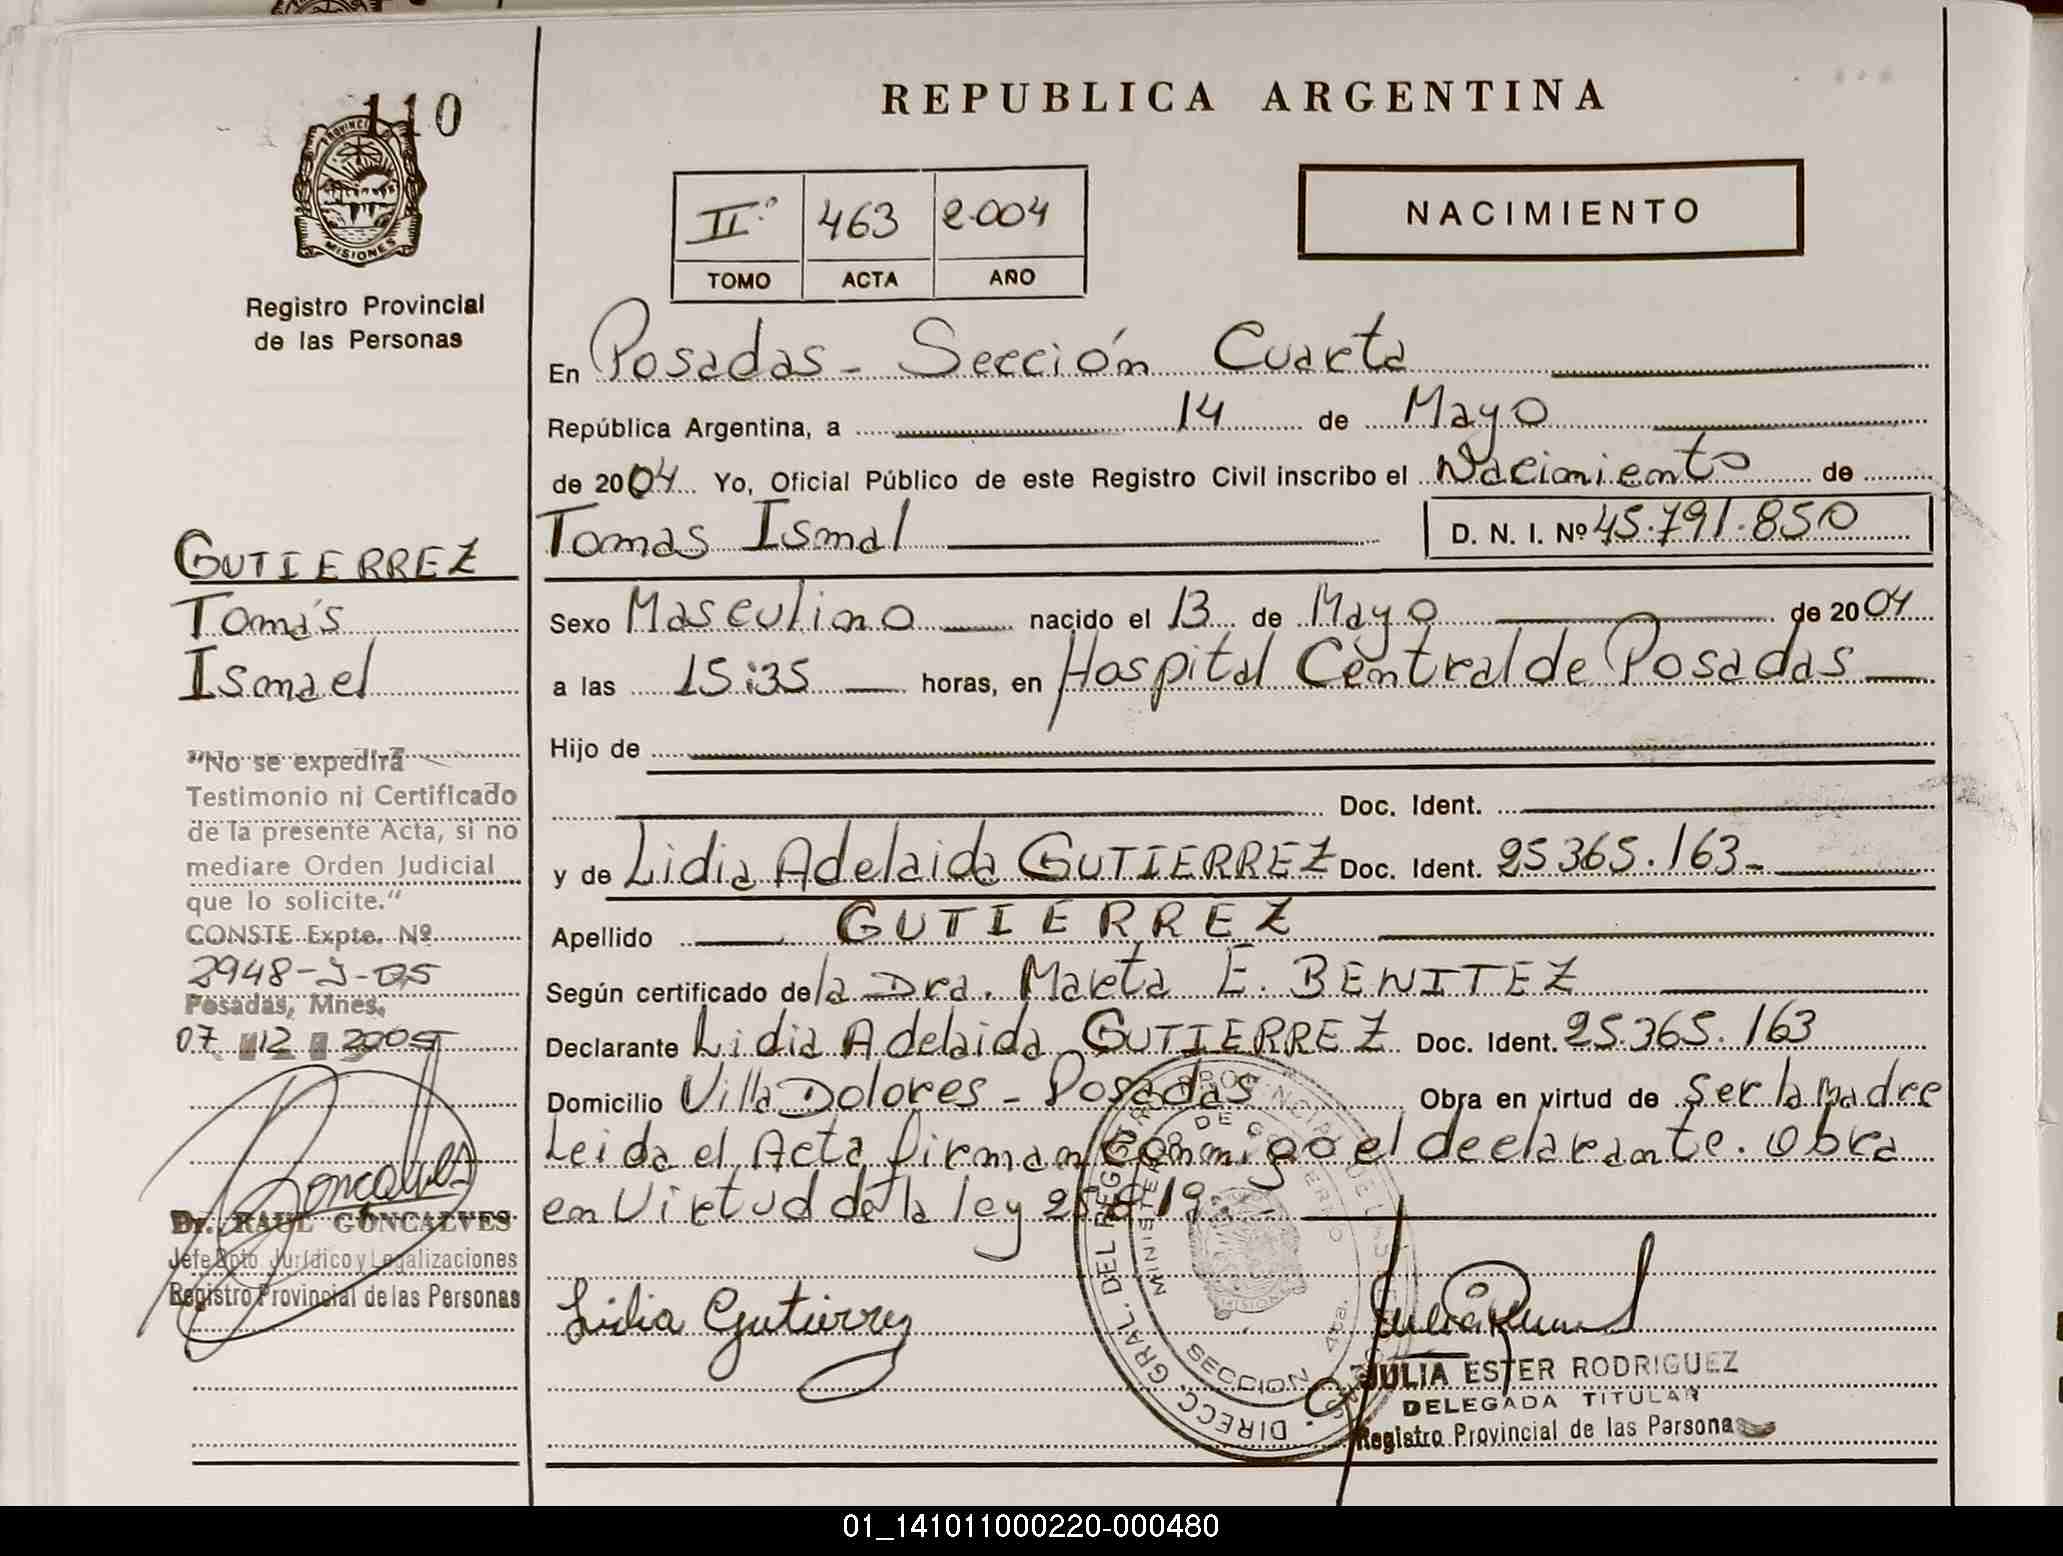 110
PROVINCIA
MISIONES
Registro Provincial
de las Personas
GUTIERREZ
Tomás
Ismael
"No se expedirá
Testimonio ni Certificado
de la presente Acta, si no
mediare Orden Judicial
que lo solicite."
CONSTE Expte. Nº
2948-J-05
Posadas, Mnes,
07 12 2005
Dr. RAUL GONCALVES
Jefe Dpto. Jurídico y Legalizaciones
Registro Provincial de las Personas
REPUBLICA ARGENTINA
IIº 463 2.004
TOMO ACTA AÑO
NACIMIENTO
En Posadas - Sección Cuarta
República Argentina, a 14 de Mayo
de 2004 Yo, Oficial Público de este Registro Civil inscribo el Nacimiento de
Tomas Ismal D. N. I. Nº 45.791.850
Sexo Masculino nacido el 13 de Mayo de 2004
a las 15:35 horas, en Hospital Central de Posadas
Hijo de
Doc. Ident.
y de Lidia Adelaida GUTIERREZ Doc. Ident. 25365.163-
Apellido GUTIERREZ
Según certificado de la Dra. Marta E. BENITEZ
Declarante Lidia Adelaida GUTIERREZ Doc. Ident. 25.365.163
Domicilio Villa Dolores - Posadas Obra en virtud de ser la Madre
Leida el Acta firman conmigo el declarante. Obra
en Virtud de la ley 25819.
Lidia Gutierrez
DIRECC. GRAL. DEL REGISTRO PROVINCIAL DE LAS PERSONAS
MINISTERIO DE GOBIERNO
MISIONES
SECCION 4ta.
JULIA ESTER RODRIGUEZ
DELEGADA TITULAR
Registro Provincial de las Personas
01_141011000220-000480